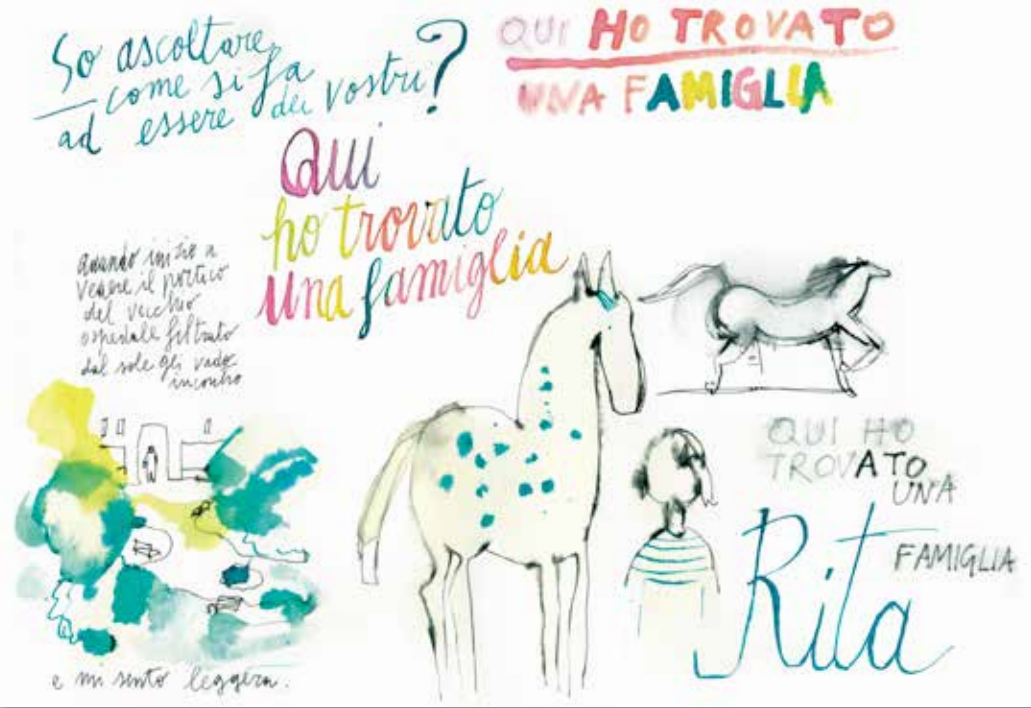 So ascoltare,
come si fa
ad essere dei vostri?
QUI HO TROVATO
UNA FAMIGLIA
Qui
ho trovato
una famiglia
quando inizio a
vedere il portico
del vecchio
ospedale filtrato
dal sole gli vado
incontro
e mi sento leggera.
QUI HO
TROVATO
UNA
FAMIGLIA
Rita